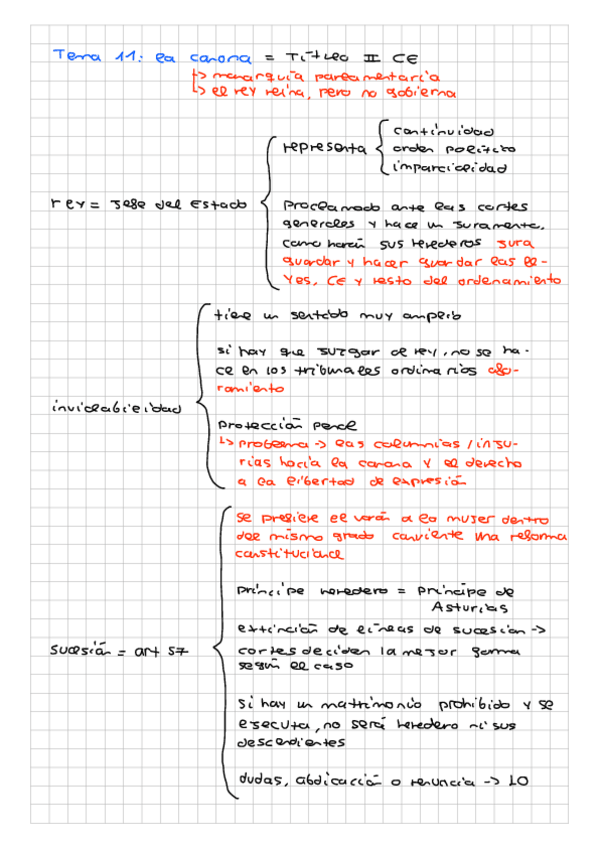 Tema 11: la corona = Título II CE
↳ monarquía parlamentaria
↳ el rey reina, pero no gobierna
rey = jefe del Estado
representa
continuidad
orden político
imparcialidad
proclamado ante las cortes
generales y hace un juramento,
como harán sus herederos jura
guardar y hacer guardar las le-
yes, CE y resto del ordenamiento
inviolabilidad
tiene un sentido muy amplio
si hay que juzgar al rey, no se ha-
ce en los tribunales ordinarios afo-
ramiento
protección penal
↳ problema → las calumnias / inju-
rias hacia la corona y el derecho
a la libertad de expresión
sucesión = art 57
se prefiere el varón a la mujer dentro
del mismo grado conviente una reforma
constitucional
príncipe heredero = príncipe de
Asturias
extinción de líneas de sucesión →
cortes deciden la mejor forma
según el caso
si hay un matrimonio prohibido y se
ejecuta, no será heredero ni sus
descendientes
dudas, abdicación o renuncia → LO